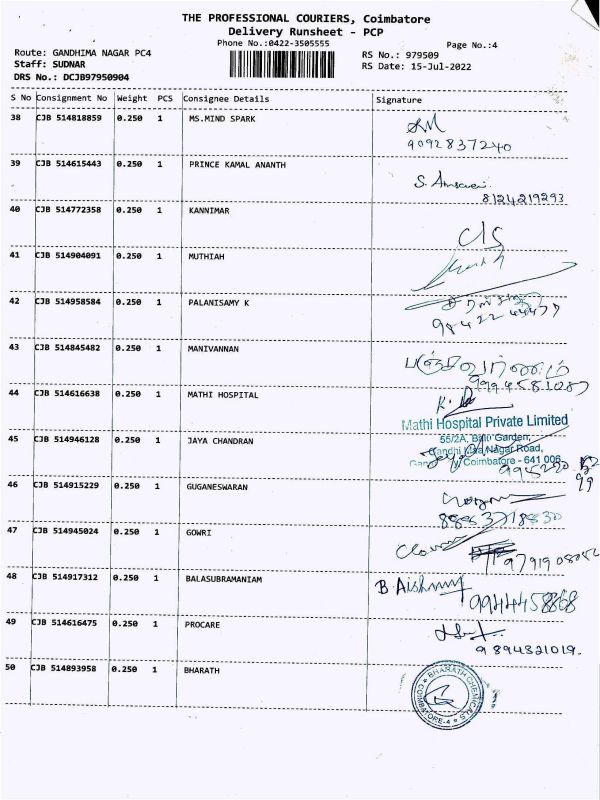 THE PROFESSIONAL COURIERS, Coimbatore
Delivery Runsheet - PCP
Phone No.:0422-3505555
Page No.:4
Route: GANDHIMA NAGAR PC4
RS No.: 979509
Staff: SUDNAR
RS Date: 15-Jul-2022
DRS No.: DCJB97950904
S No Consignment No Weight PCS Consignee Details Signature
38 CJB 514818859 0.250 1 MS.MIND SPARK
9092837240
39 CJB 514615443 0.250 1 PRINCE KAMAL ANANTH
8124219293
40 CJB 514772358 0.250 1 KANNIMAR
41 CJB 514904091 0.250 1 MUTHIAH
42 CJB 514958584 0.250 1 PALANISAMY K
43 CJB 514845482 0.250 1 MANIVANNAN
44 CJB 514616638 0.250 1 MATHI HOSPITAL
Mathi Hospital Private Limited
55/2A, Garden,
Gandhi Maa Nagar Road,
Coimbatore - 641 006
45 CJB 514946128 0.250 1 JAYA CHANDRAN
46 CJB 514915229 0.250 1 GUGANESWARAN
47 CJB 514945024 0.250 1 GOWRI
48 CJB 514917312 0.250 1 BALASUBRAMANIAM
B.
49 CJB 514616475 0.250 1 PROCARE
9894321019.
50 CJB 514893958 0.250 1 BHARATH
BHARATH CHEMICALS
COIMBATORE-4